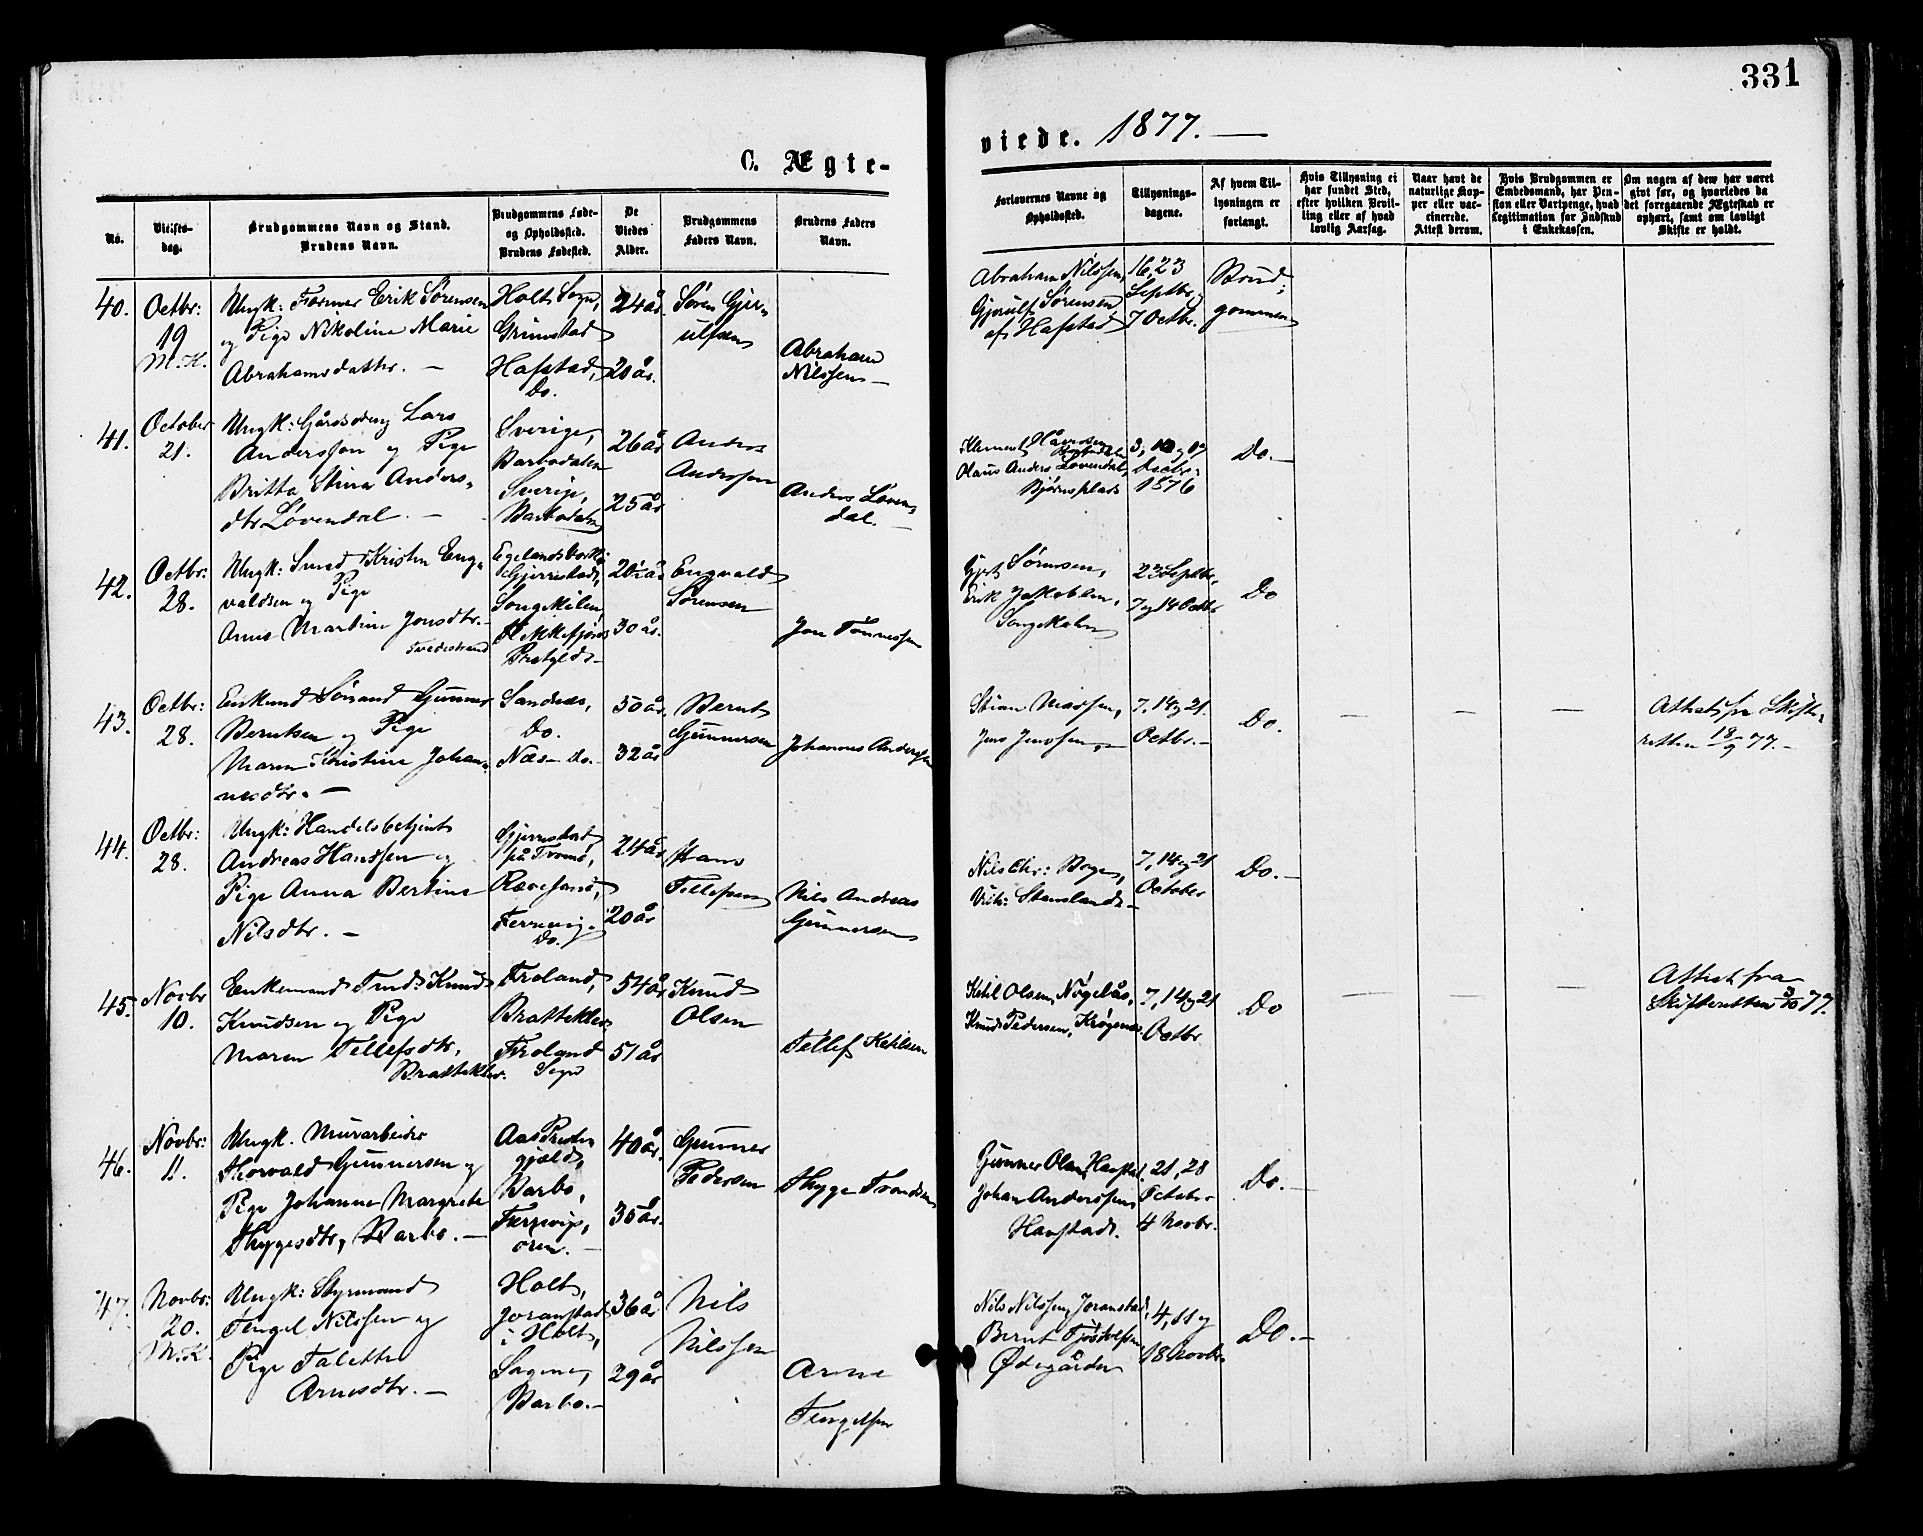 331
C. Ægte-
viede. 1877. —
No.
Vielses-
dag.
Brudgommens Navn og Stand.
Brudens Navn.
Brudgommens Føde-
og Opholdssted.
Brudens Fødested.
De
Viedes
Alder.
Brudgommens
Faders Navn.
Brudens Faders
Navn.
Forlovernes Navne og
Opholdssted.
Tillysnings-
dagene.
Af hvem Til-
lysningen er
forlangt.
Hvis Tillysning ei
har fundet Sted,
efter hvilken Bevil-
ling eller af hvad
lovlig Aarsag.
Naar havt de
naturlige Kop-
per eller vac-
cinerede.
Attest derom.
Hvis Brudgommen er
Embedsmand, har Pen-
sion eller Vartpenge, hvad
Legitimation for Indskud
i Enkekassen.
Om nogen af dem har været
gift før, og hvorledes da
det foregaaende Ægteskab er
ophørt, samt om lovligt
Skifte er holdt.
40.
Octbr:
19
M.K.
Ungk: Farmer Erik Sörensen
og Pige Nikoline Marie
Abrahamsdatter. —
Holt Sogn,
Grimstad
Hafstad,
Do.
24 år.
20 år.
Sören Gjer-
ulfsen
Abraham
Nilssen —
Abraham Nilssen,
Gjerulf Sörensen,
af Hafstad
16, 23
Septbr,
7 Octbr.
Brud-
gommen
41.
October
21.
Ungk: Gårdsdreng Lars
Anderssen og Pige
Britta Stina Anders-
dtr Lövendal. —
Sverige,
Barbodalen
Sverige,
Barbodalen
26 år
25 år
Anders
Anderssen
Anders Löven-
dal. —
Klement
Hans Anders Lövendal,
Björnsplads
3, 10 og 17
Decbr.
1876
Do. —
42.
Octbr:
28.
Ungk: Smed Kristen Eng-
valdsen og Pige
Anne Martine Jonsdtr. —
Tvedestrand
Egelands Verk,
Gjerrestad,
Songe
Flekkefjords
Prstgld. —
30 år.
Engvald
Sörensen
Jon Tönnessen
Gjert Sörensen,
Erik Jakobsen,
23 Septbr,
7 og 14 Octbr
Do
43.
Octbr:
28.
Enkemd Gunner
Berntsen og Pige
Maren Kristine Johan-
nesdtr. —
Sandnes,
Do.
Næs — Do. —
50 år.
32 år
Bernt
Gunnersen
Johannes Anderssen
Stian Niessen,
Jens Jenssen, —
7, 14 og 21.
Octbr. —
Do.
— — —
Attest fra Skifte-
retten 18/9 77. —
44.
Octbr:
28.
Ungk: Handelsbetjent
Andreas Hanssen og
Pige Anna Bertine
Nilsdtr. —
Gjerrestad
på Tromö,
Rævesand,
Fervevig.
Do.
24 år
20 år
Hans
Tellefsen
Nils Andreas
Gunnersen
Nils Chr: Boye,
Vilh: Stensland. —
7, 14 og 21
October
Do. —
45.
Novbr
10.
Enkemand Tmd: Knud
Knudsen og Pige
Maren Tellefsdtr,
Brattekler.
Froland,
Brattekler,
Froland
Sogn
54 år
51 år
Knud
Olsen
Tellef Ketilsen
Ketil Olsen, Nögelås,
Knud Pedersen, Krögenes.
7, 14 og 21
Octbr
Do
— — —
Attest fra
Skifteretten 3/10 77.
46.
Novbr:
11.
Ungk. Murarbeider
Thorvald Gunnersen og
Pige Johanne Margrete
Thygesdtr, Barbo. —
Aas Præste-
gjæld,
Barbo,
Færevigs-
ören. —
40 år.
35 år.
Gunner
Pedersen
Thyge Trondsen
Gunner Olsen, Havstad.
Johan Anderssen
Havstad.
21, 28
October
4 Novbr.
Do. —
47.
Novbr:
20.
M.K.
Ungk: Styrmand
Tengel Nilssen og
Pige Talette
Arnesdtr. —
Holt,
Joranstad
i Holt,
Sagene,
Barbo. —
36 år
29 år
Nils
Nilssen
Arne
Tengelsen
Nils Nilssen, Joranstad,
Bernt Tjöstolfsen,
Ødegården
4, 11 og
18 Novbr.
Do. —